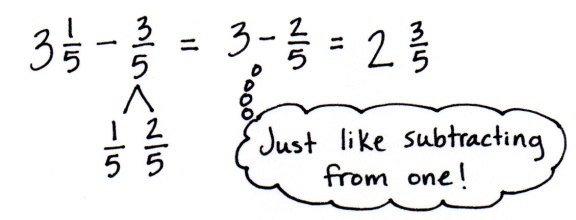 3 1/5 - 3/5 = 3 - 2/5 = 2 3/5
1/5 2/5
Just like subtracting
from one!